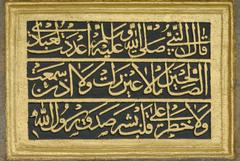 قال النبي صلى الله عليه اعددت لعبادي
الصالحين ما لا عين رات ولا اذن سمعت
ولا خطر على قلب بشر صدق رسول الله